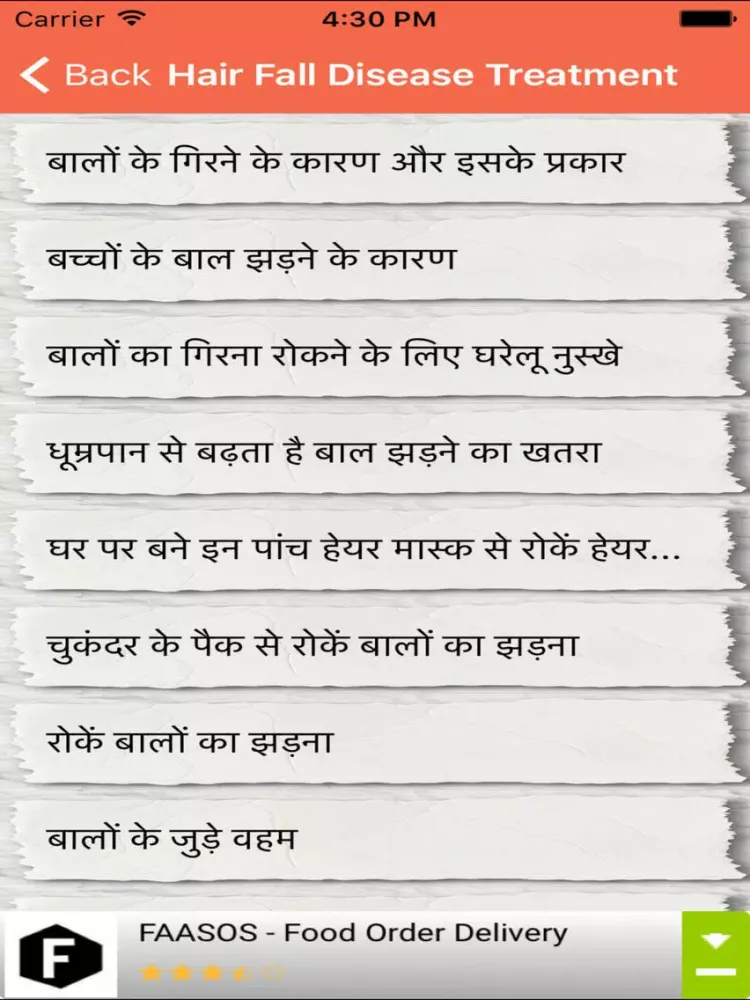 Carrier 4:30 PM
Back Hair Fall Disease Treatment
बालों के गिरने के कारण और इसके प्रकार
बच्चों के बाल झड़ने के कारण
बालों का गिरना रोकने के लिए घरेलू नुस्खे
धूम्रपान से बढ़ता है बाल झड़ने का खतरा
घर पर बने इन पांच हेयर मास्क से रोकें हेयर...
चुकंदर के पैक से रोकें बालों का झड़ना
रोकें बालों का झड़ना
बालों के जुड़े वहम
F
FAASOS - Food Order Delivery